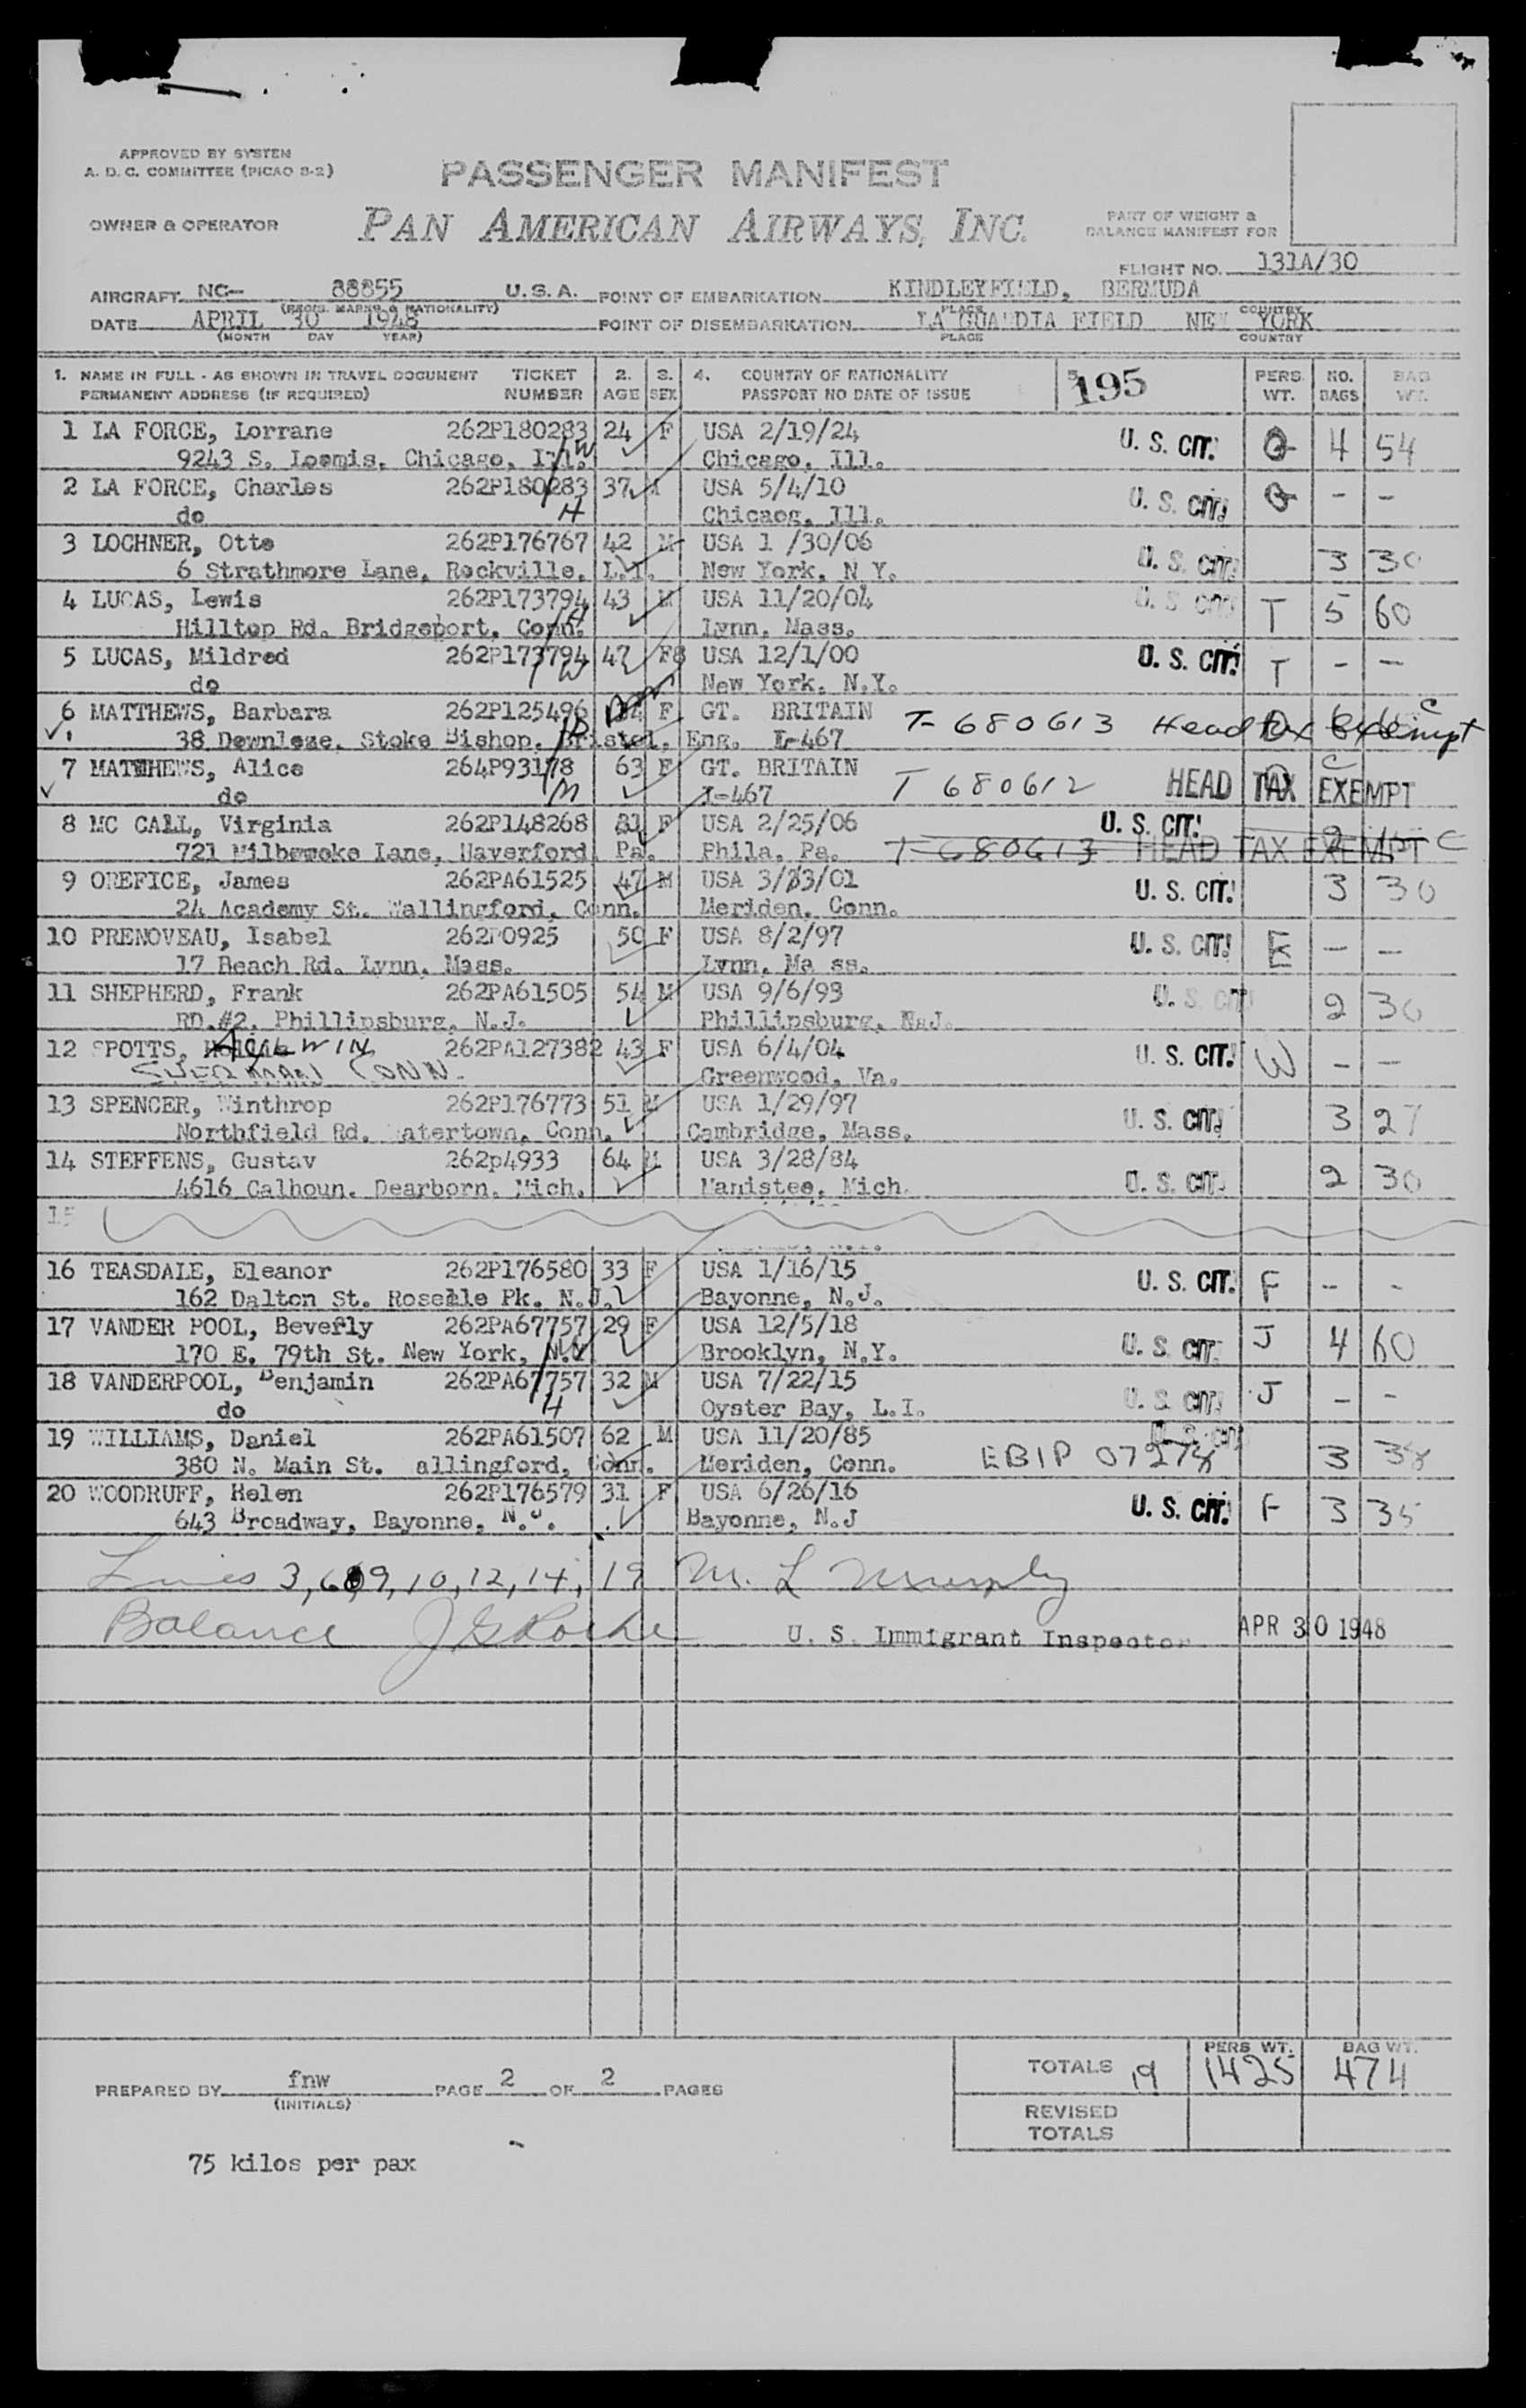 APPROVED BY SYSTEM
A. D. C. COMMITTEE (PICAO S-2)
PASSENGER MANIFEST
OWNER & OPERATOR PAN AMERICAN AIRWAYS, INC.
PART OF WEIGHT &
BALANCE MANIFEST FOR
FLIGHT NO. 131A/30
AIRCRAFT NC- 88855 U.S.A. POINT OF EMBARKATION KINDLEYFIELD, BERMUDA
(REGIS. MARKS & NATIONALITY) PLACE COUNTRY
DATE APRIL 30 1948 POINT OF DISEMBARKATION LA GUARDIA FIELD NEW YORK
(MONTH DAY YEAR) PLACE COUNTRY
1. NAME IN FULL - AS SHOWN IN TRAVEL DOCUMENT TICKET 2. 3. 4. COUNTRY OF NATIONALITY 5 195 PERS. NO. BAG
PERMANENT ADDRESS (IF REQUIRED) NUMBER AGE SEX PASSPORT NO DATE OF ISSUE WT. BAGS WT.
1 LA FORCE, Lorrane 262P180283 24 F USA 2/19/24 U. S. CIT. 4 54
9243 S. Loomis, Chicago, Ill. W Chicago, Ill.
2 LA FORCE, Charles 262P180283 37 USA 5/4/10 U. S. CIT. - -
do H Chicaog, Ill.
3 LOCHNER, Otto 262P176767 42 M USA 1 /30/06 U. S. CIT. 3 30
6 Strathmore Lane, Rockville, L.I. New York, N Y.
4 LUCAS, Lewis 262P173794 43 M USA 11/20/04 U. S. CIT. T 5 60
Hilltop Rd. Bridgeport, Conn. H Lynn, Mass.
5 LUCAS, Mildred 262P173794 47 F USA 12/1/00 U. S. CIT. T - -
do W New York, N.Y.
6 MATTHEWS, Barbara 262P125496 F GT. BRITAIN T-680613 Head tax exempt C
38 Downleze, Stoke Bishop, Bristol, Eng. I-467
7 MATTHEWS, Alice 264P93178 63 F GT. BRITAIN T 680612 HEAD TAX EXEMPT C
do M I-467
8 MC CALL, Virginia 262P148268 F USA 2/25/06 U. S. CIT. 2
721 Milbemoke Lane, Haverford, Pa. Phila, Pa. T-680613 HEAD TAX EXEMPT C
9 OREFICE, James 262PA61525 47 M USA 3/23/01 U. S. CIT. 3 30
24 Academy St. Wallingford, Conn. Meriden, Conn.
10 PRENOVEAU, Isabel 262P0925 50 F USA 8/2/97 U. S. CIT. E - -
17 Beach Rd. Lynn, Mass. Lynn, Ma ss.
11 SHEPHERD, Frank 262PA61505 54 M USA 9/6/93 U. S. CIT. 2 30
RD.#2, Phillipsburg, N.J. Phillipsburg, N.J.
12 SPOTTS, AYLWIN 262PA127382 43 F USA 6/4/04 U. S. CIT. W - -
SHERMAN CONN. Greenwood, Va.
13 SPENCER, Winthrop 262P176773 51 M USA 1/29/97 U. S. CIT. 3 27
Northfield Rd. Watertown, Conn. Cambridge, Mass.
14 STEFFENS, Gustav 262p4933 64 M USA 3/28/84 U. S. CIT. 2 30
4616 Calhoun. Dearborn, Mich. Manistee, Mich.
15
16 TEASDALE, Eleanor 262P176580 33 F USA 1/16/15 U. S. CIT. F - -
162 Dalton St. Roselle Pk. N.J. Bayonne, N.J.
17 VANDER POOL, Beverly 262PA67757 29 F USA 12/5/18 U. S. CIT. J 4 60
170 E. 79th St. New York, N.Y. W Brooklyn, N.Y.
18 VANDERPOOL, Benjamin 262PA67757 32 M USA 7/22/15 U. S. CIT. J - -
do H Oyster Bay, L.I.
19 WILLIAMS, Daniel 262PA61507 62 M USA 11/20/85 U. S. CIT. 3 38
380 N. Main St. allingford, Conn. Meriden, Conn. EBIP 07278
20 WOODRUFF, Helen 262P176579 31 F USA 6/26/16 U. S. CIT. F 3 35
643 Broadway, Bayonne, N.J. Bayonne, N.J
Lines 3, 6, 9, 10, 12, 14, 19 M. L Murphy
Balance J G Roche U. S. Immigrant Inspector APR 30 1948
TOTALS 19 PERS WT. 1425 BAG WT. 474
PREPARED BY fnw PAGE 2 OF 2 PAGES
(INITIALS)
REVISED
TOTALS
75 kilos per pax